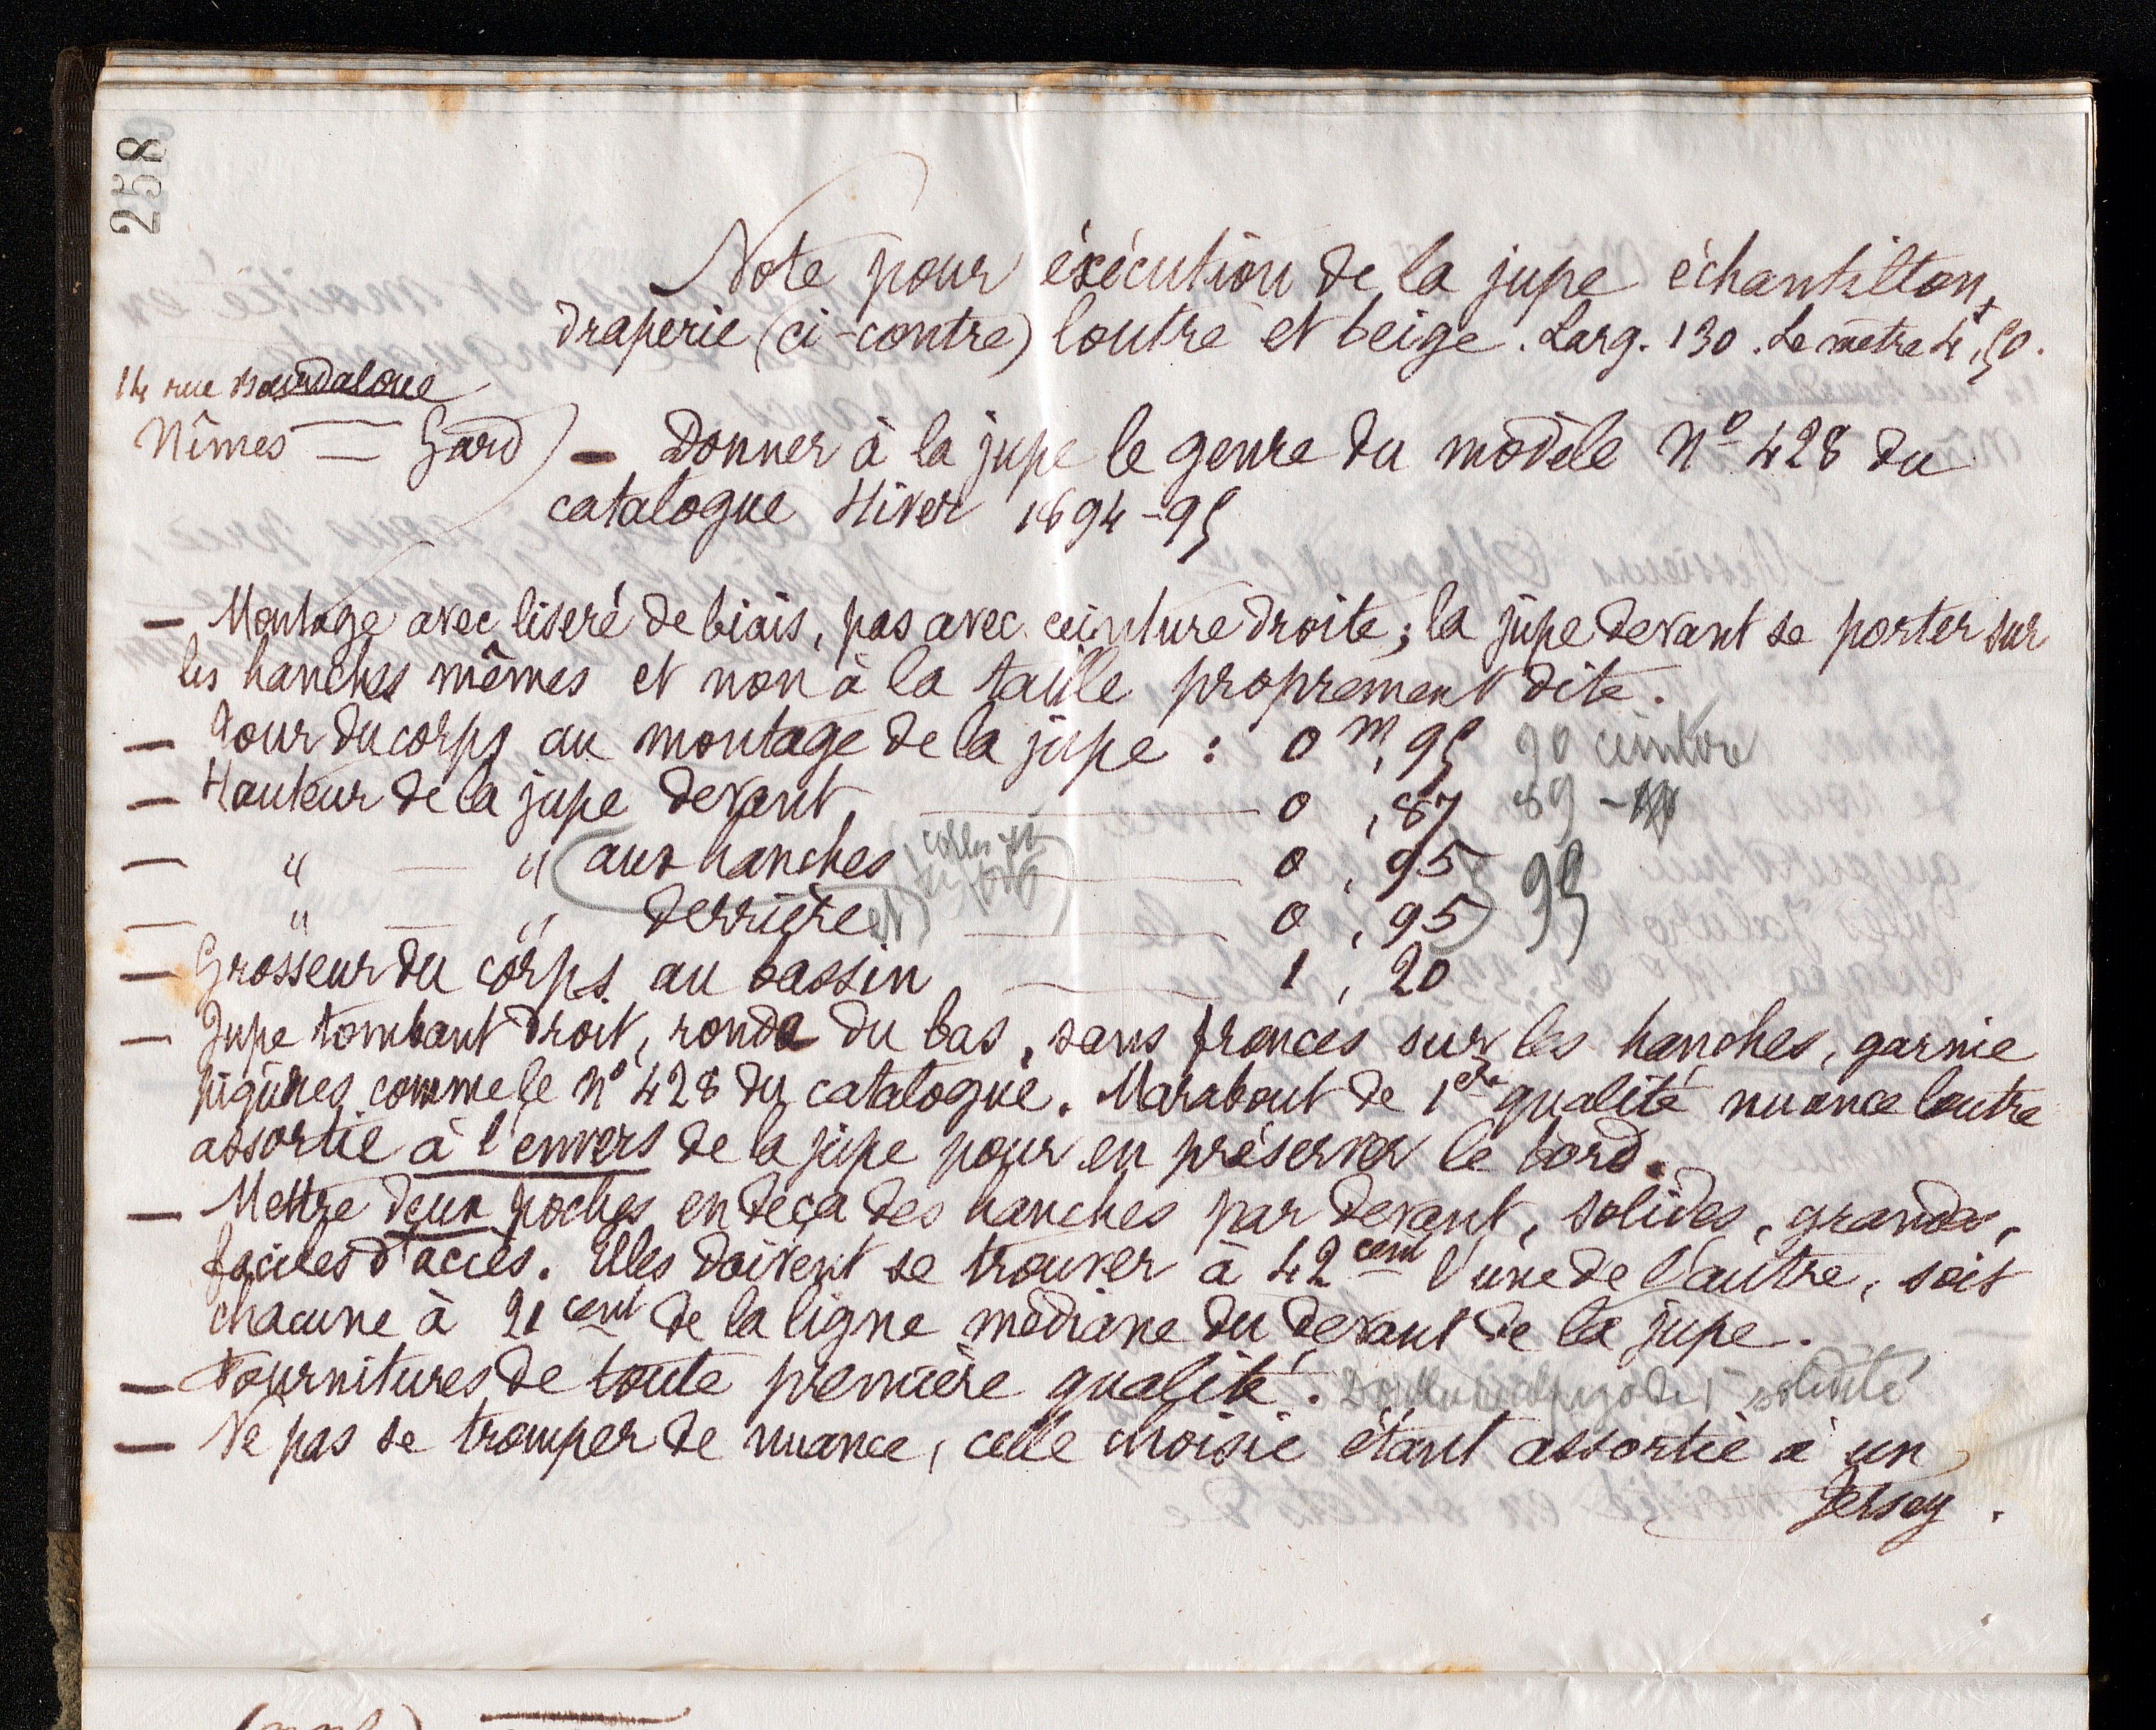 258
Note pour éxécution de la jupe échantillon,
draperie (ci-contre) loutre et beige. Larg. 130. Le mètre 4f,50.
14 rue Bourdaloue
Nîmes — Gard
— Donner à la jupe le genre du modèle Nº 428 du
catalogue Hiver 1894-95
— Montage avec liseré de biais, pas avec ceinture droite; la jupe devant se porter sur
les hanches mêmes et non à la taille proprement dite.
— Tour du corps au montage de la jupe : 0 m, 95 90 ceinture
— Hauteur de la jupe devant, — 0 , 87 89 -
— " — " (aux hanches — 0 , 95
— " — " derrière — 0 , 95) 99
— Grosseur du corps au bassin — 1 , 20
— Jupe tombant droit, ronde du bas, sans fronces sur les hanches, garnie
piqûres comme le nº 428 du catalogue. Marabout de 1ère qualité nuance loutre
assortie à l'envers de la jupe pour en préserver le bord.
— Mettre deux poches en deçà des hanches par devant, solides, grandes,
faciles d'accès. Elles doivent se trouver à 42 cent l'une de l'autre, soit
chacune à 21 cent de la ligne médiane du devant de la jupe.
— Fournitures de toute première qualité. solidité
— Ne pas se tromper de nuance, celle choisie étant assortie à un
Jersey.